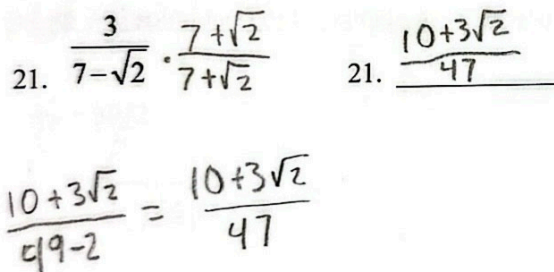 21. \frac{3}{7-\sqrt{2}} \cdot \frac{7+\sqrt{2}}{7+\sqrt{2}}
21. \frac{10+3\sqrt{2}}{47}
\frac{10+3\sqrt{2}}{49-2} = \frac{10+3\sqrt{2}}{47}